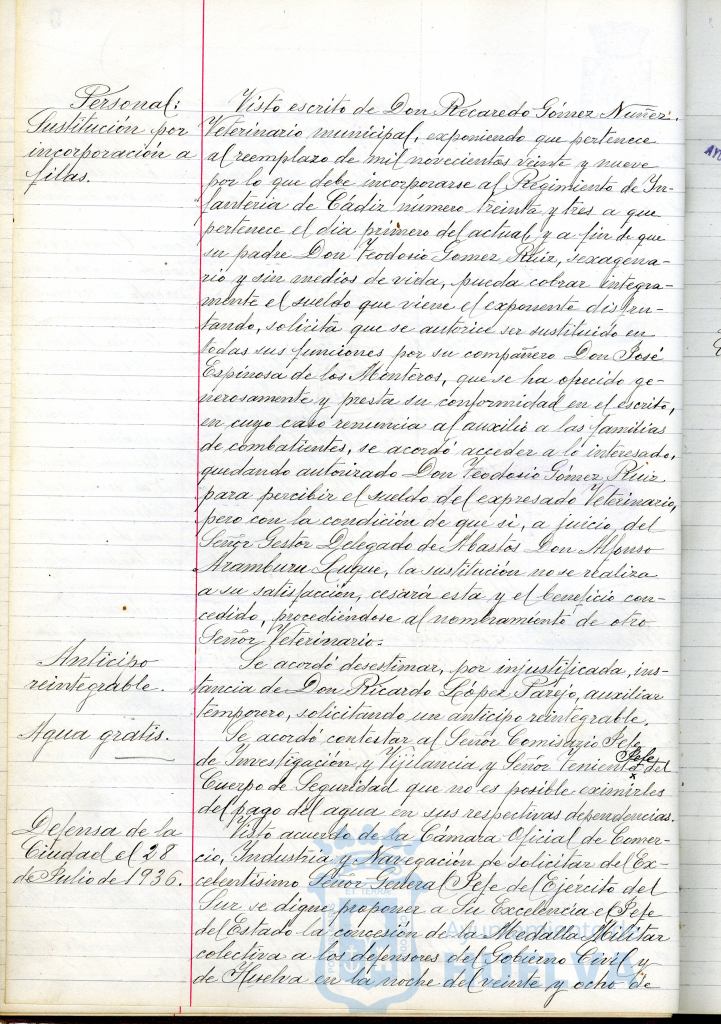 Personal:
Sustitución por
incorporación a
filas.
Visto escrito de Don Recaredo Gómez Nuñez,
Veterinario municipal, exponiendo que pertenece
al reemplazo de mil novecientos veinte y nueve
por lo que debe incorporarse al Regimiento de In-
fanteria de Cádiz número treinta y tres a que
pertenece el dia primero del actual, y a fin de que
su padre Don Teodosio Gomez Ruiz, sexagena-
rio y sin medios de vida, pueda cobrar integra-
mente el sueldo que viene el exponente disfru-
tando, solicita que se autorice ser sustituido en
todas sus funciones por su compañero Don José
Espinosa de los Monteros, que se ha ofrecido ge-
nerosamente y presta su conformidad en el escrito,
en cuyo caso renuncia al auxilio a las familias
de combatientes, se acordó acceder a lo interesado,
quedando autorizado Don Teodosio Gómez Ruiz
para percibir el sueldo del expresado Veterinario,
pero con la condición de que si, a juicio, del
Señor Gestor Delegado de Abastos Don Alfonso
Aramburu Luque, la sustitución no se realiza
a su satisfacción, cesará esta y el beneficio con-
cedido, procediéndose al nombramiento de otro
Señor Veterinario.
Anticipo
reintegrable.
Se acordó desestimar, por injustificada, ins-
tancia de Don Ricardo López Parejo, auxiliar
temporero, solicitando un anticipo reintegrable.
Agua gratis.
Se acordó contestar al Señor Comisario Jefe
de Investigación y Vigilancia y Señor Teniente Jefe del
Cuerpo de Seguridad que no es posible eximirles
del pago del agua en sus respectivas dependencias.
Defensa de la
Ciudad el 28
de Julio de 1936.
Visto acuerdo de la Cámara Oficial de Comer-
cio, Industria y Navegación de solicitar del Ex-
celentísimo Señor General Jefe del Ejercito del
Sur se digne proponer a Su Excelencia el Jefe
del Estado la concesión de la Medalla Militar
colectiva a los defensores del Gobierno Civil y
de Huelva en la noche del veinte y ocho de
Ayuntamiento de
HUELVA